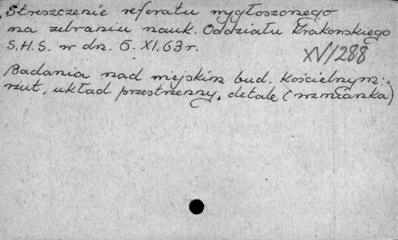 Streszczenie referatu wygłoszonego
na zebraniu nauk. Oddziału Krakowskiego
S.H.S. w dn. 5. XI. 63 r.
XV/288
Badania nad wiejskim bud. kościelnym:
rzut, układ przestrzenny, detale (wzmianka)